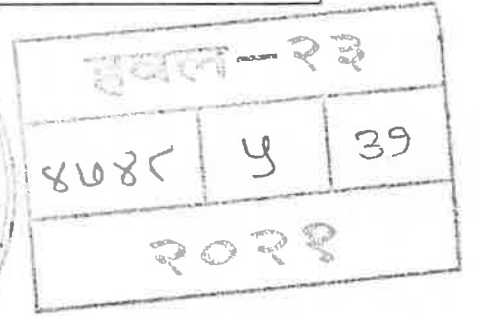 हवल - २३
४७४८ ५ ३१
२०२१